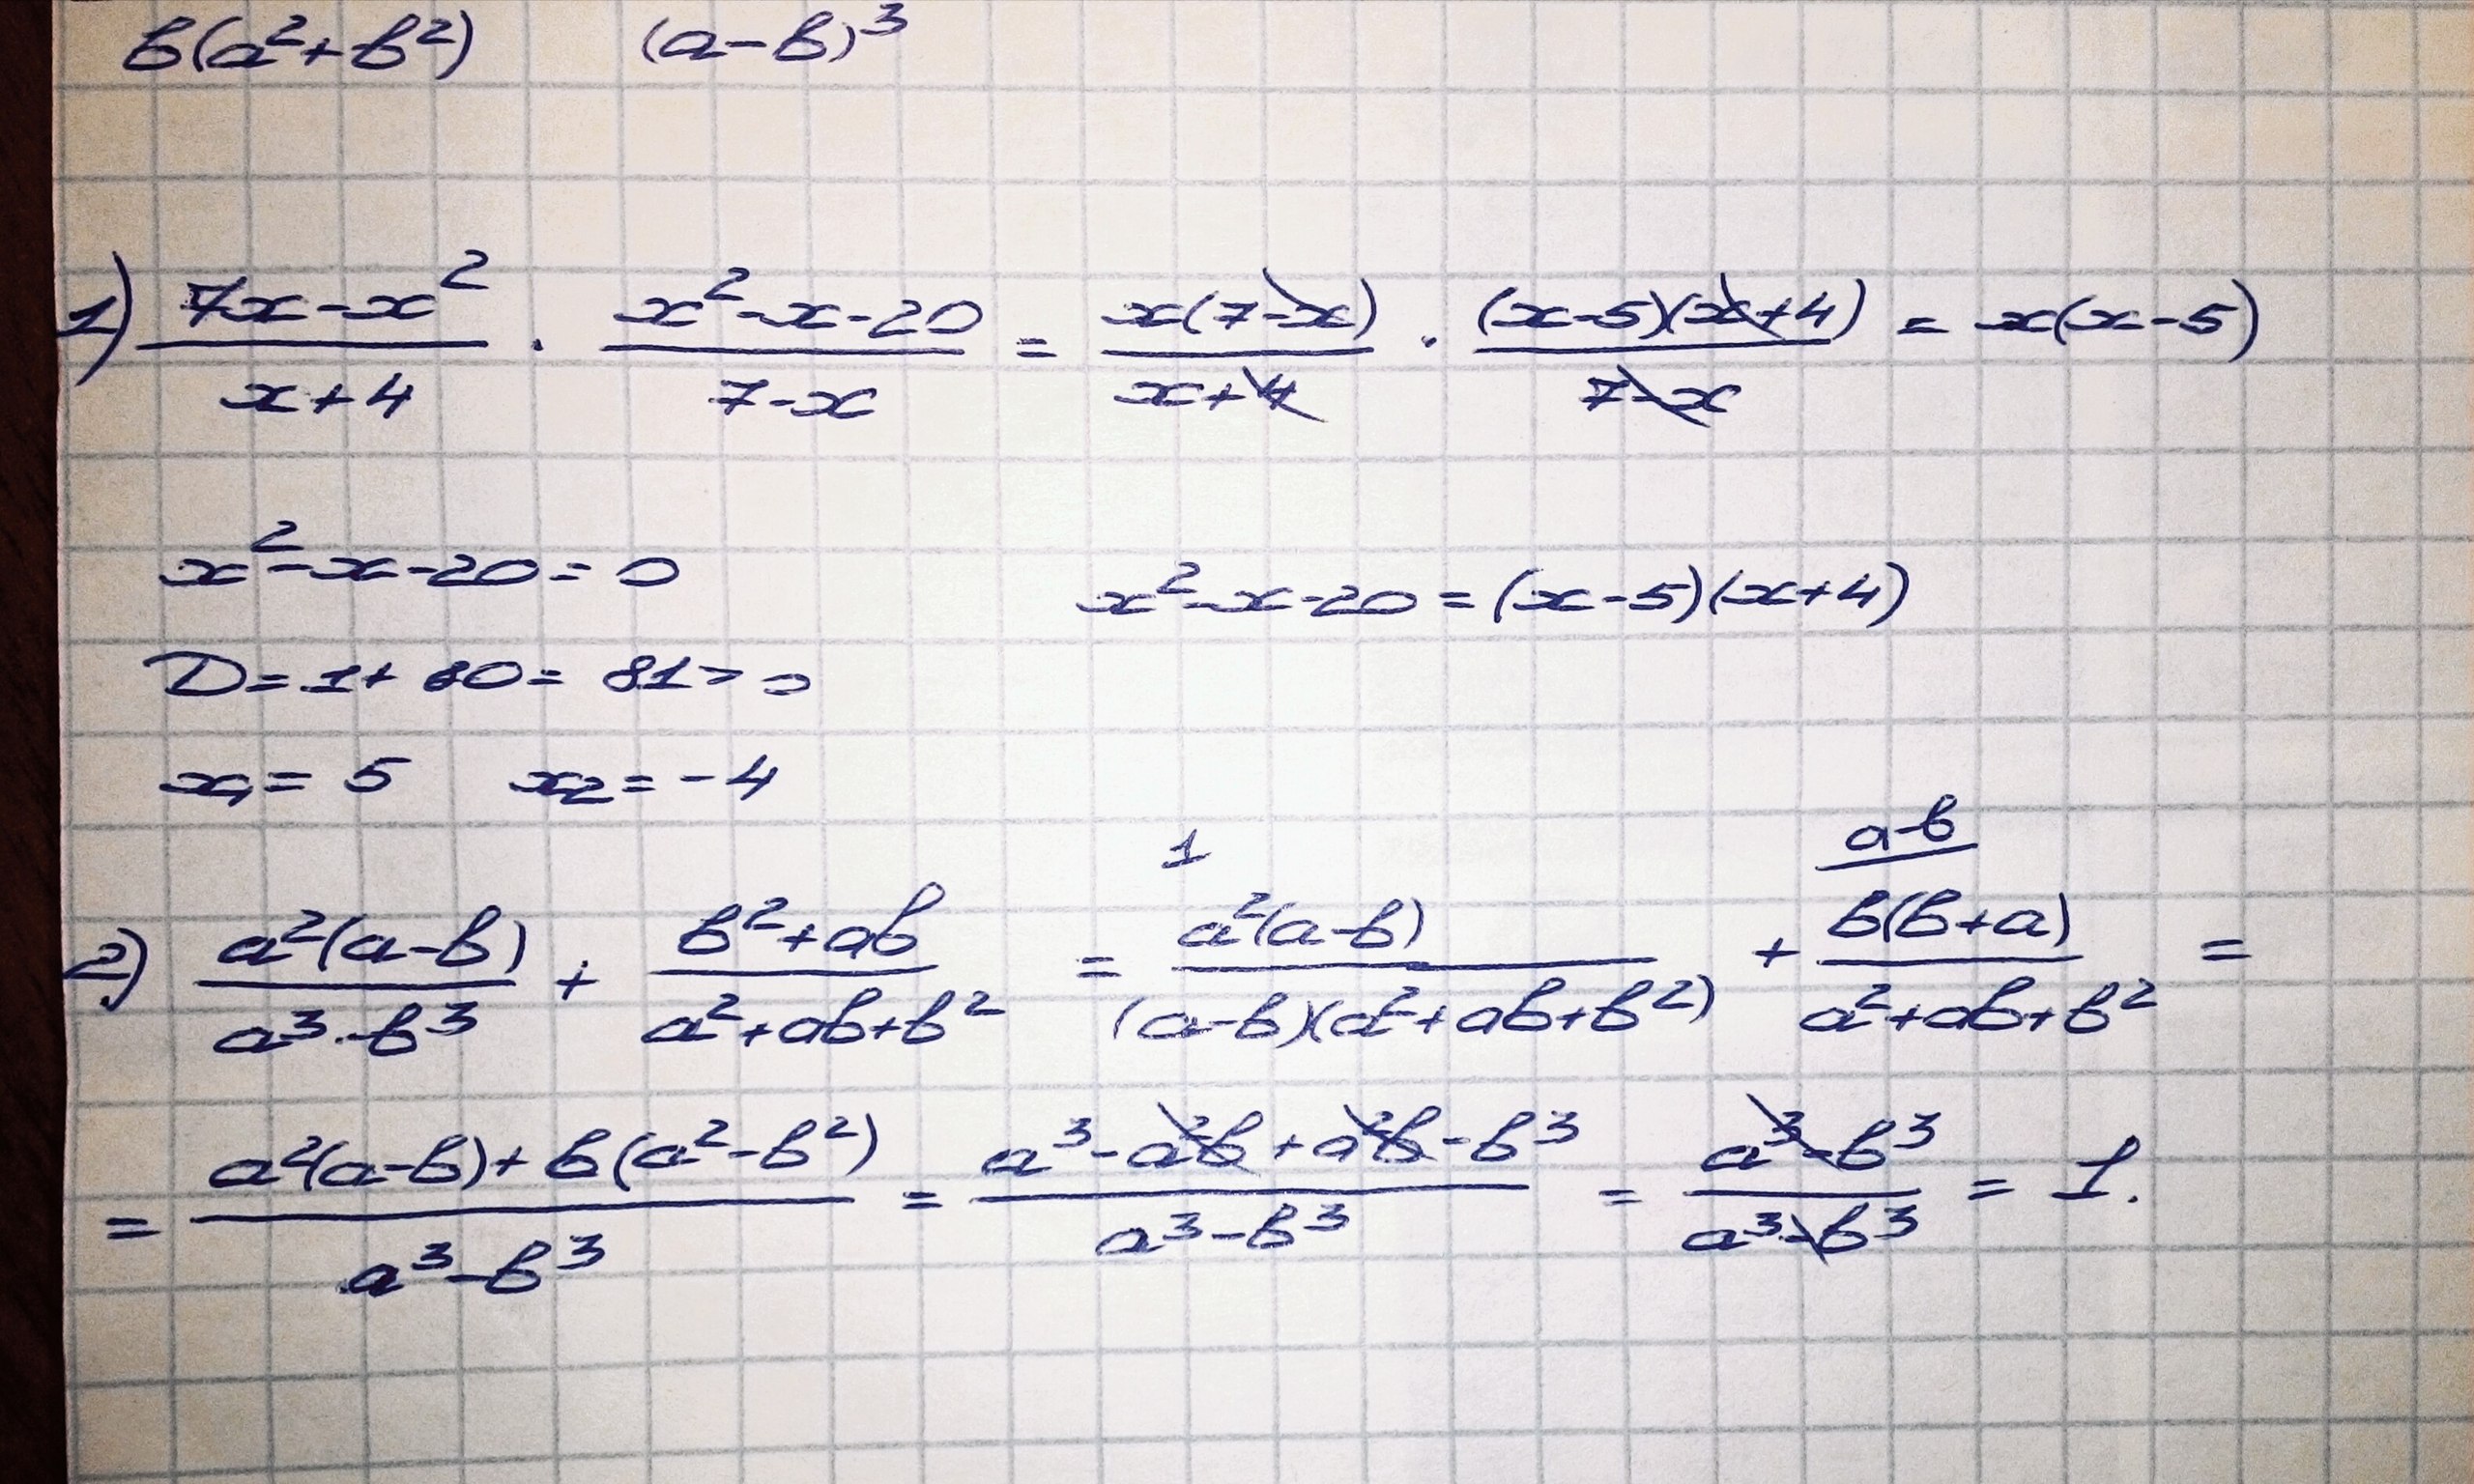 b(a²+b²) (a-b)³
1) (7x-x²)/(x+4) · (x²-x-20)/(7-x) = x(7-x)/(x+4) · (x-5)(x+4)/(7-x) = x(x-5)
x²-x-20=0 x²-x-20=(x-5)(x+4)
D=1+80=81>0
x₁=5 x₂=-4
1 a-b
2) a²(a-b)/(a³-b³) + (b²+ab)/(a²+ab+b²) = a²(a-b)/((a-b)(a²+ab+b²)) + b(b+a)/(a²+ab+b²) =
= (a²(a-b)+b(a²-b²))/(a³-b³) = (a³-a²b+a²b-b³)/(a³-b³) = (a³-b³)/(a³-b³) = 1.